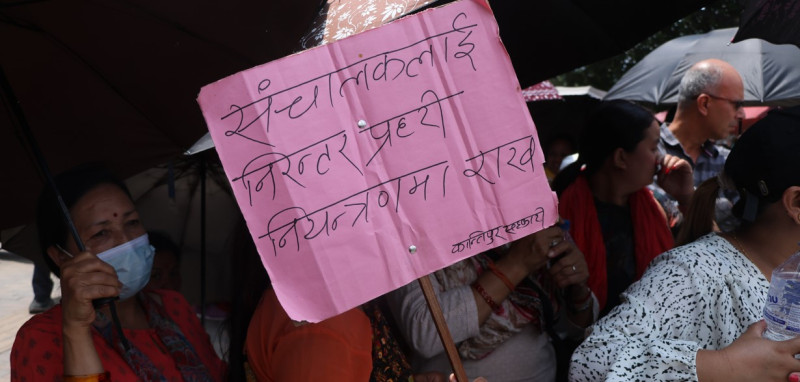 संचालकलाई
निरन्तर प्रहरी
नियन्त्रणमा राख
कान्तिपुर सहकारी